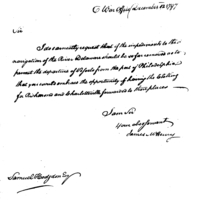 War Office December 22 1797
Sir
I do earnestly request that if the impediments to the
navigation of the River Delaware should be so far removed as to
permit the departure of Vessels from the port of Philadelphia
that you would embrace the opportunity of having the Clothing
for Richmond and Charlottesville forwarded to those places
I am Sir
Your Obed Servant
James McHenry
Samuel Hodgdon Esq